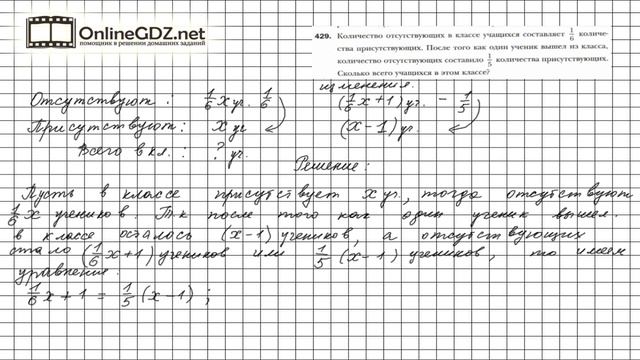 OnlineGDZ.net
помощник в решении домашних заданий
429. Количество отсутствующих в классе учащихся составляет 1/6 количе-
ства присутствующих. После того как один ученик вышел из класса,
количество отсутствующих составило 1/5 количества присутствующих.
Сколько всего учащихся в этом классе?
изменения.
Отсутствуют : 1/6 x уч. 1/6 (1/6 x + 1) уч. - 1/5
Присутствуют : x уч (x - 1) уч.
Всего в кл. : ? уч.
Решение :
Пусть в классе присутствует x уч., тогда отсутствуют
1/6 x учеников. Т.к после того как один ученик вышел.
в классе осталось (x - 1) учеников, а отсутствующих
стало (1/6 x + 1) учеников или 1/5 (x - 1) учеников, то имеем
уравнение :
1/6 x + 1 = 1/5 (x - 1) ;